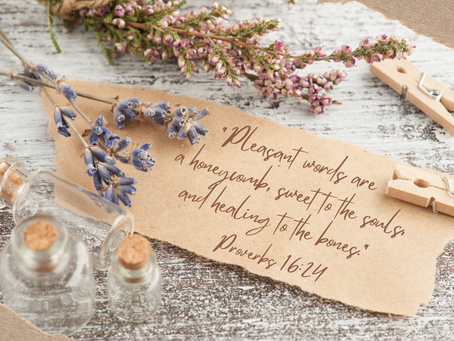 "Pleasant words are
a honeycomb, sweet to the souls,
and healing to the bones."
Proverbs 16:24